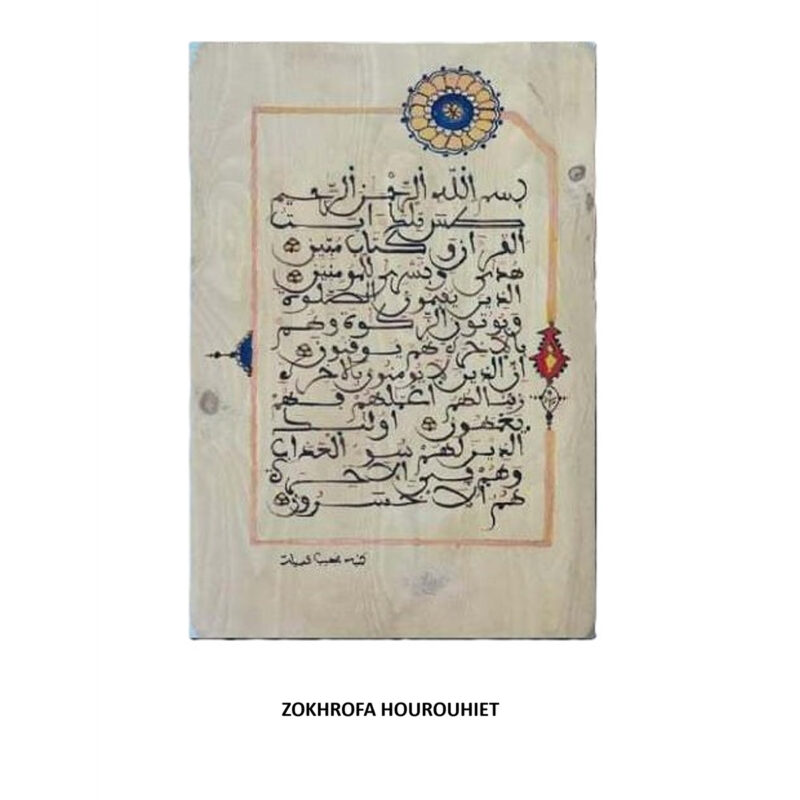 بسم الله الرحمن الرحيم
طس تلك ايت
القرءان وكتاب مبين
هدى وبشرى للمومنين
الذين يقيمون الصلوة
ويوتون الزكوة وهم
بالاخرة هم يوقنون
ان الذين لا يومنون بالاخرة
زينا لهم اعملهم فهم
يعمهون اولئك
الذين لهم سوء العذاب
وهم في الاخرة
هم الاخسرون
كتبه
ZOKHROFA HOUROUHIET